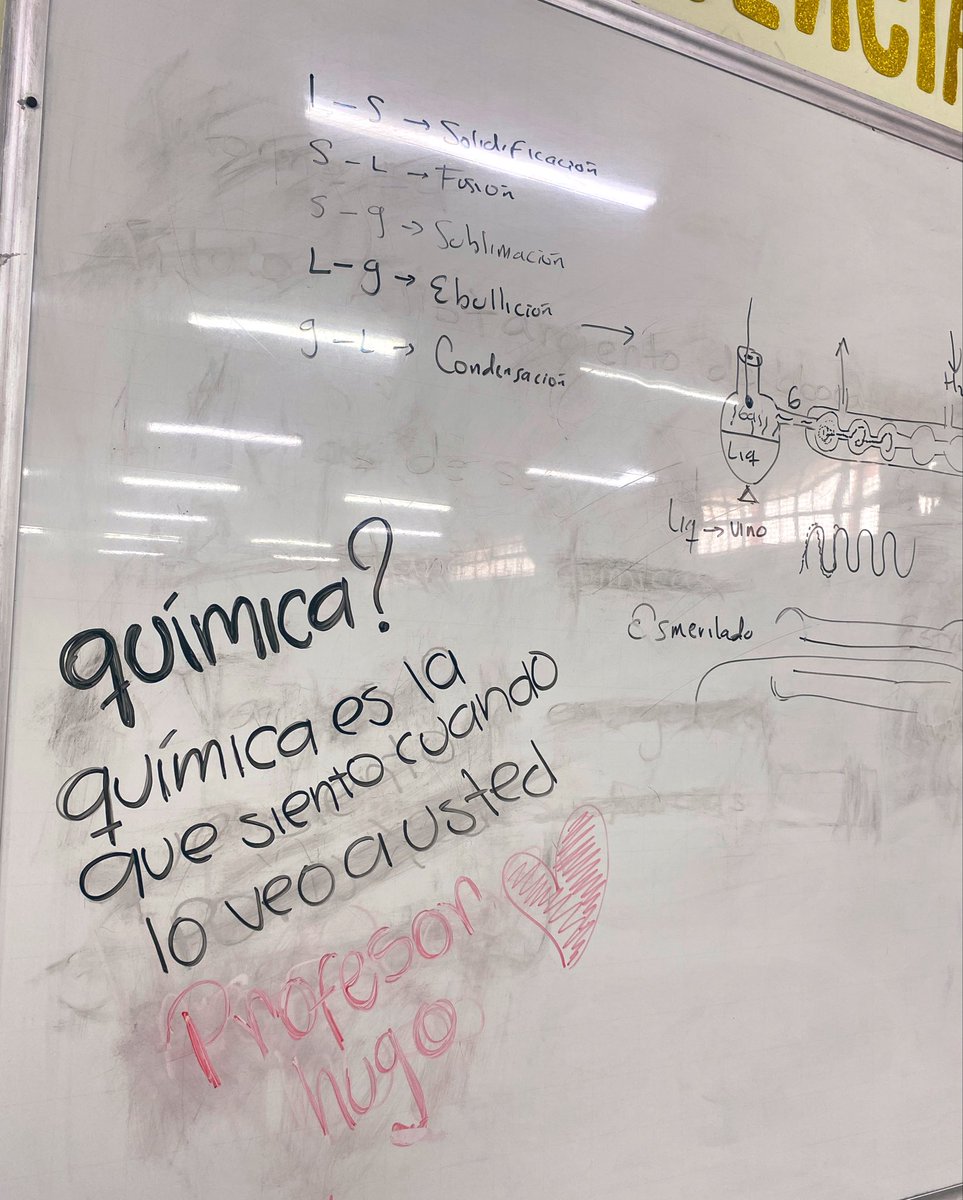 L - S → Solidificación
S - L → Fusión
S - g → Sublimación
L - g → Ebullición →
g - L → Condensación
6
gas
Liq
H₂
Liq → vino
Esmerilado
química?
química es la
que siento cuando
lo veo a usted
Profesor
hugo